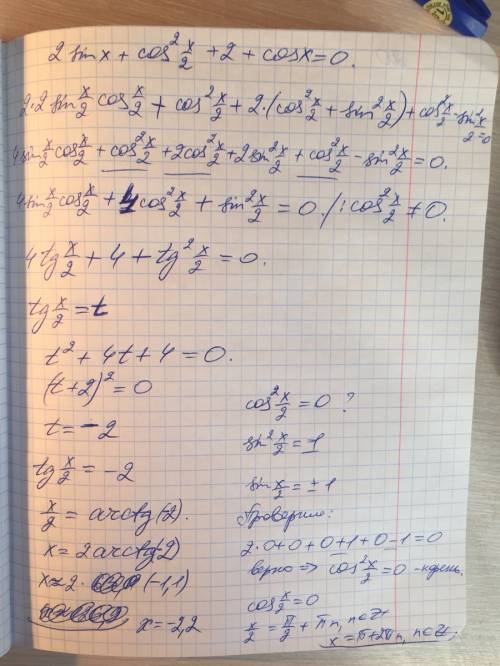 2 sin x + cos² x/2 + 2 + cos x = 0.
2·2 sin x/2 cos x/2 + cos² x/2 + 2·(cos² x/2 + sin² x/2) + cos² x/2 - sin² x/2 = 0
4 sin x/2 cos x/2 + cos² x/2 + 2cos² x/2 + 2 sin² x/2 + cos² x/2 - sin² x/2 = 0.
4 sin x/2 cos x/2 + 4 cos² x/2 + sin² x/2 = 0. /: cos² x/2 ≠ 0.
4 tg x/2 + 4 + tg² x/2 = 0.
tg x/2 = t
t² + 4t + 4 = 0.
(t+2)² = 0
t = -2
tg x/2 = -2
x/2 = arctg(-2).
x = 2 arctg(-2)
x ≈ 2· (-1,1)
x = -2,2
cos² x/2 = 0 ?
sin² x/2 = 1
sin x/2 = ± 1
Проверим:
2·0+0+0+1+0-1=0
верно => cos² x/2 = 0 - корень.
cos x/2 = 0
x/2 = π/2 + πn, n∈Z
x = π+2πn, n∈Z.